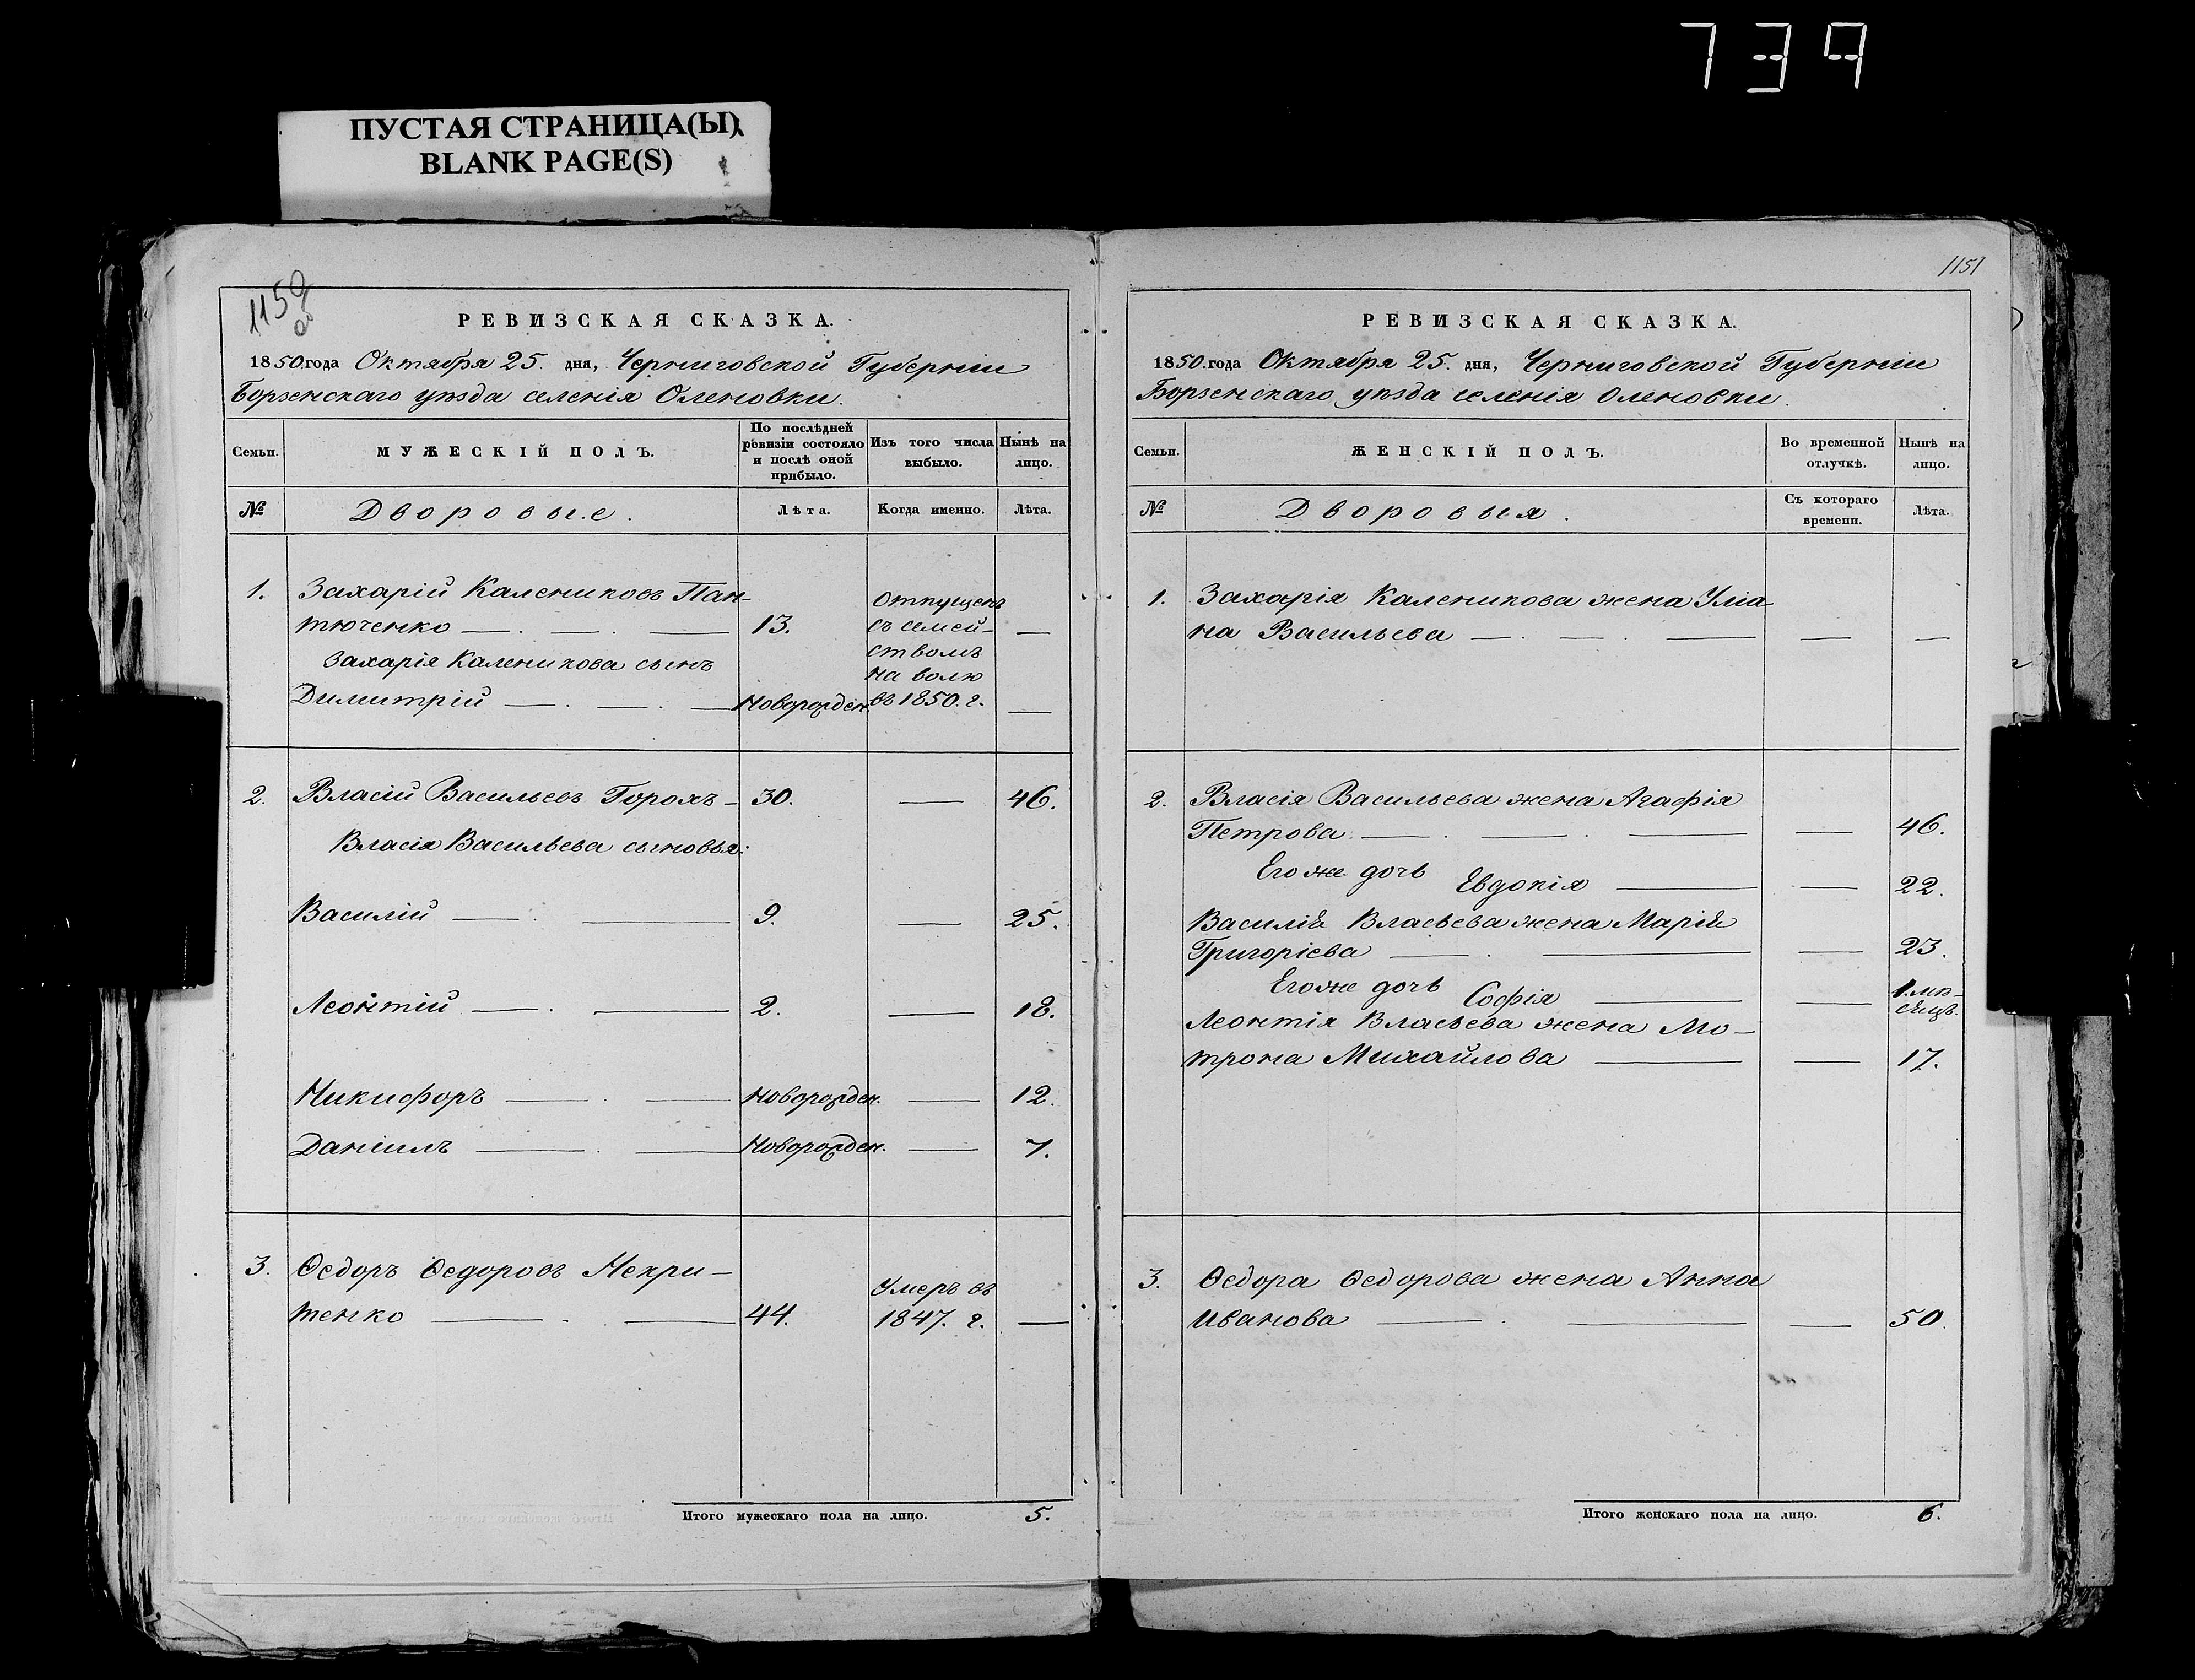 739
ПУСТАЯ СТРАНИЦА(Ы)
BLANK PAGE(S)
1150
об
РЕВИЗСКАЯ СКАЗКА.
1850 года Октября 25. дня, Черниговской Губерніи
Борзенскаго уѣзда селенія Оленовки.
Семьи.
МУЖЕСКІЙ ПОЛЪ.
По послѣдней
ревизіи состояло
и послѣ оной
прибыло.
Изъ того числа
выбыло.
Нынѣ на
лицо.
№
Дворовые.
Лѣта.
Когда именно.
Лѣта.
1. Захарій Калениковъ Пан-
тюченко — 13. —
Захарія Каленикова сынъ
Димитрій — Новорожден. —
Отпущенъ
съ семей-
ствомъ
на волю
въ 1850. г.
2. Власій Васильевъ Горохъ — 30. — 46.
Власія Васильева сыновья:
Василій — 9. — 25.
Леонтій — 2. — 18.
Никифоръ — Новорожден. — 12.
Даніилъ — Новорожден. — 7.
3. Ѳедоръ Ѳедоровъ Нехри-
тенко — 44. —
Умеръ въ
1847. г.
Итого мужескаго пола на лицо. 5.
1151
РЕВИЗСКАЯ СКАЗКА.
1850. года Октября 25. дня, Черниговской Губерніи
Борзенскаго уѣзда селенія Оленовки.
Семьи.
ЖЕНСКІЙ ПОЛЪ.
Во временной
отлучкѣ.
Нынѣ на
лицо.
№
Дворовыя.
Съ котораго
времени.
Лѣта.
1. Захарія Каленикова жена Уліа-
на Васильева — — —
2. Власія Васильева жена Агафія
Петрова — — 46.
Его же дочь Евдокія — — 22.
Василія Власьева жена Марія
Григоріева — — 23.
Его же дочь Софія — — 1. мѣ-
сяцъ.
Леонтія Власьева жена Мо-
трона Михайлова — — 17.
3. Ѳедора Ѳедорова жена Анна
Иванова — — 50.
Итого женскаго пола на лицо. 6.